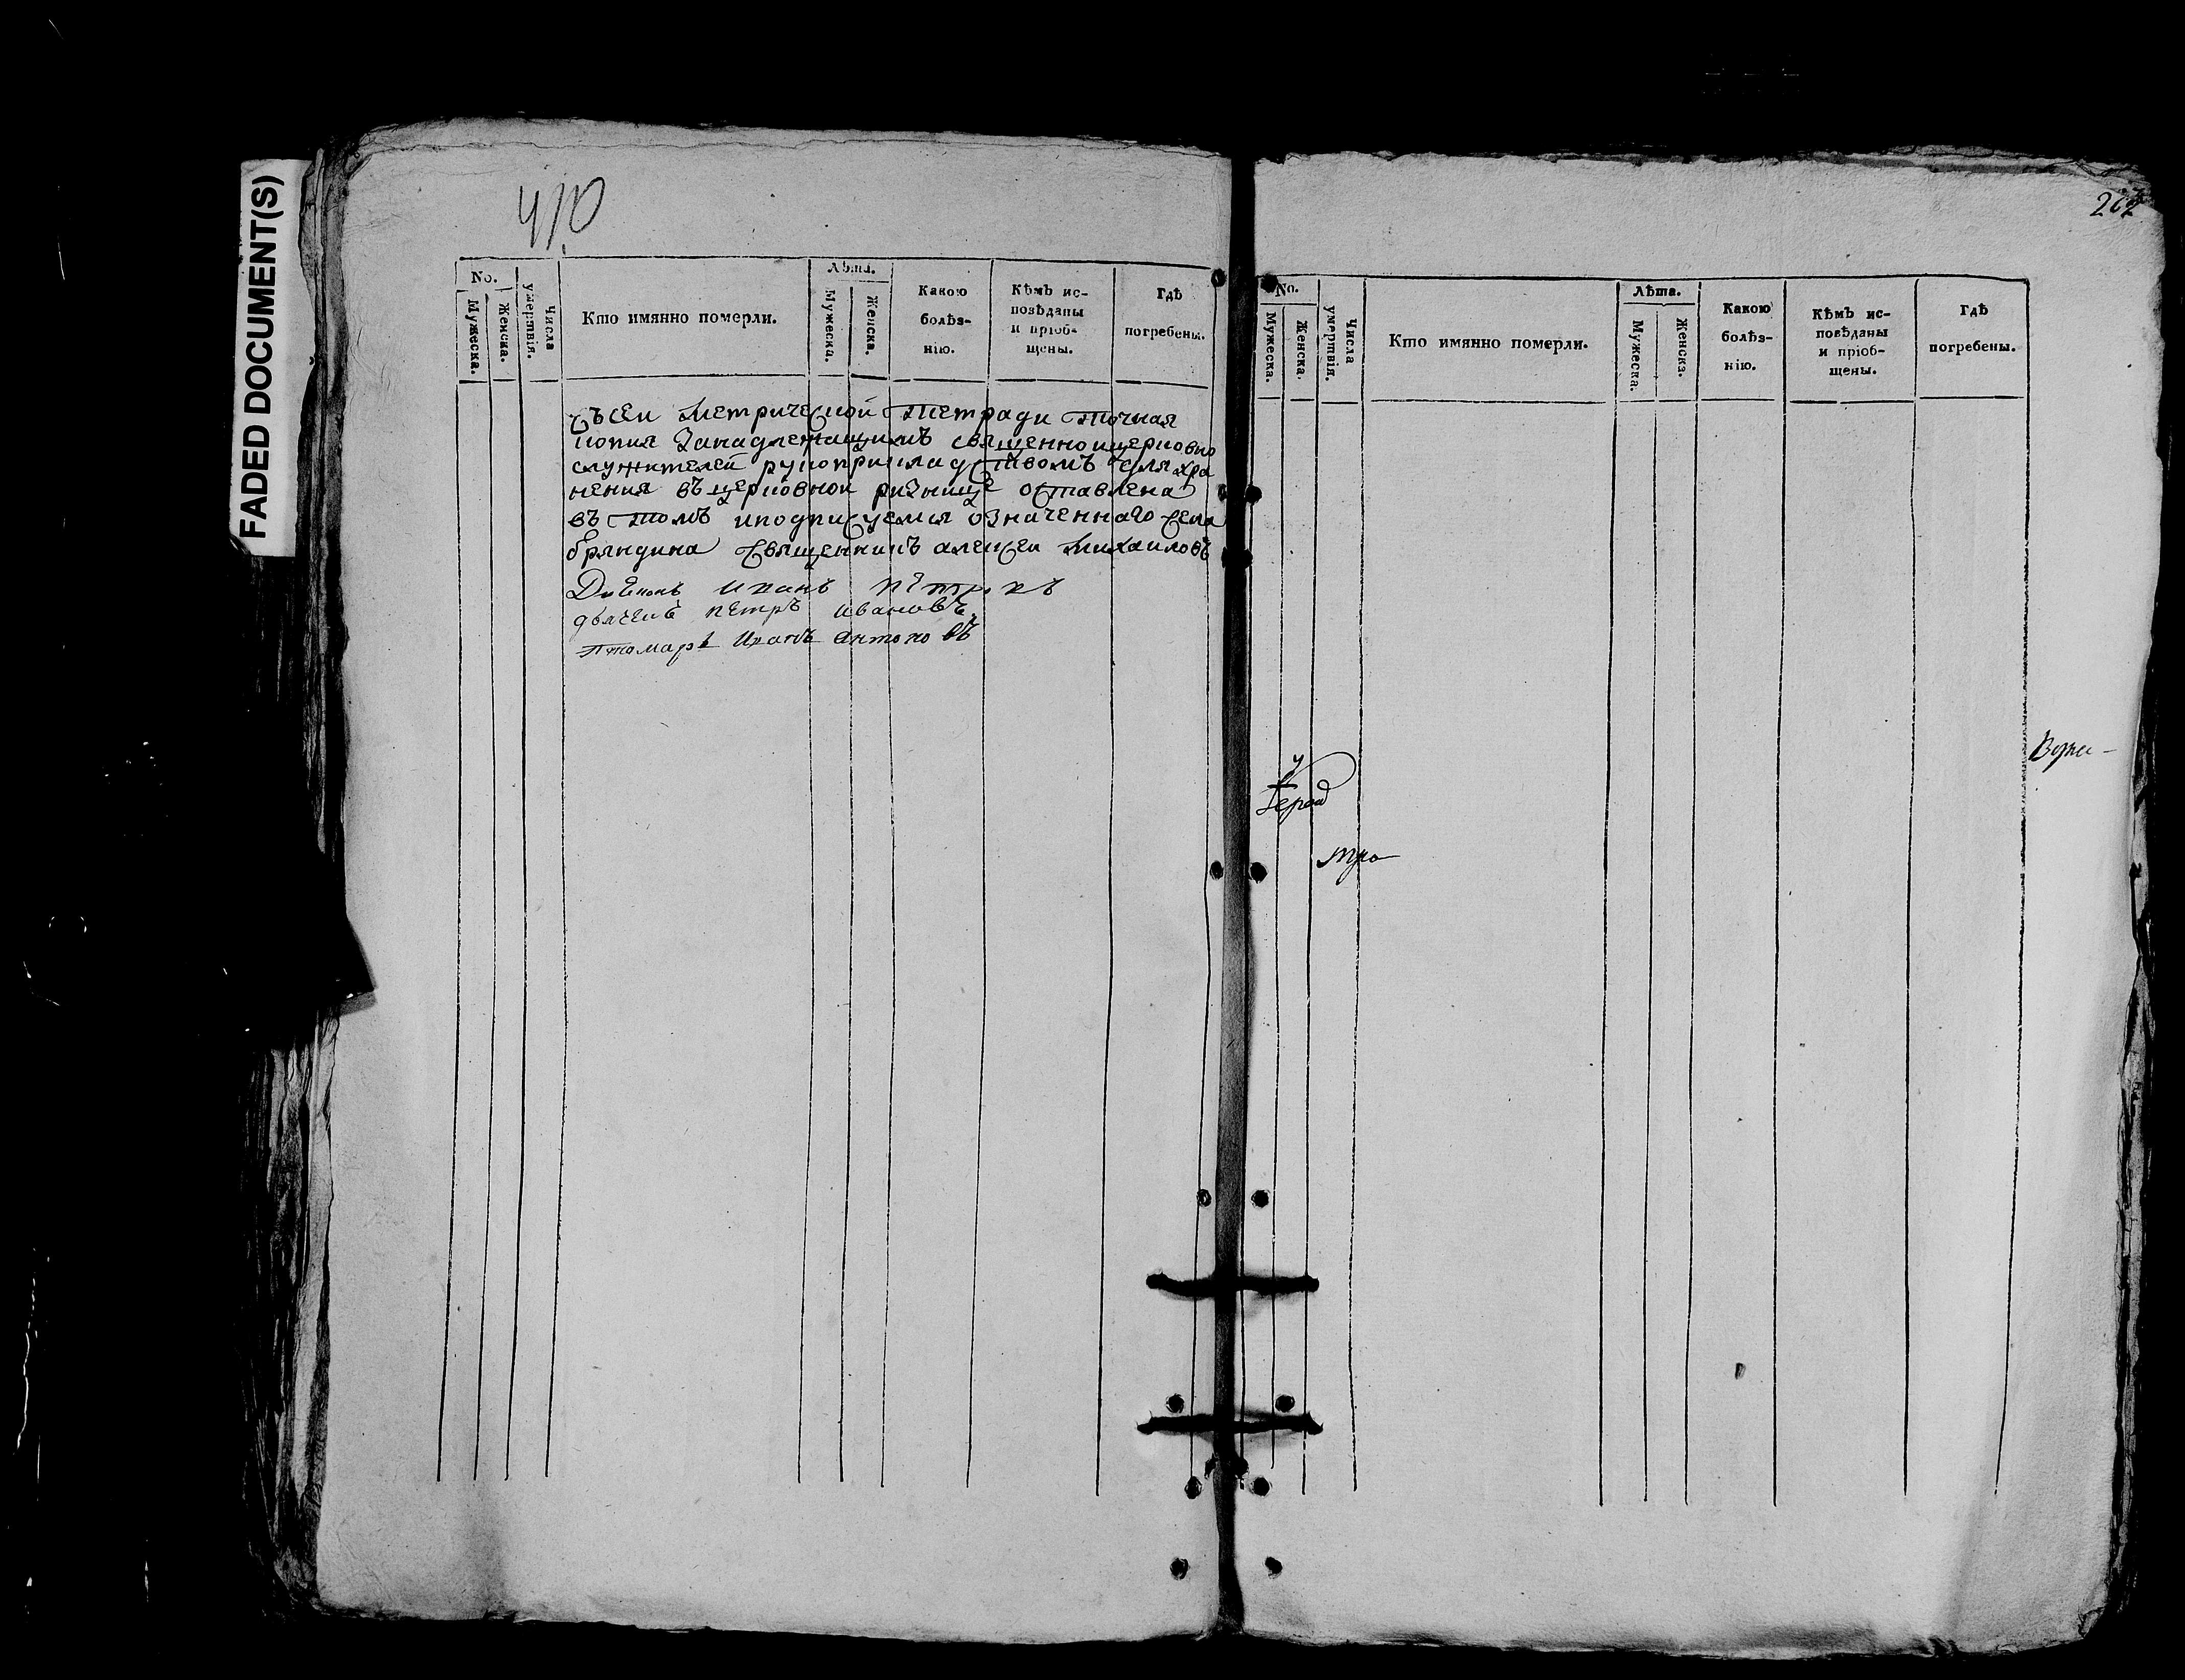 FADED DOCUMENT(S)
410
No.
Мужеска.
Женска.
Числа умертвія.
Кто имянно померли.
Лѣта.
Мужеска.
Женска.
Какою
болѣз-
нію.
Кѣмъ ис-
повѣданы
и пріоб-
щены.
Гдѣ
погребены.
съсеи метрической тетради точная
копия занадлежащимъ священноицерковно
служителей рукоприкладствомъ для хра
нения въ церковнои ризнице оставлена
въ томъ иподписуемся означеннаго села
бряндина священникъ алексеи михаиловъ
Диаконъ Иванъ петровъ
дьячекъ петръ ивановъ
пономарь Иванъ антоновъ
No.
Мужеска.
Женска.
Числа умертвія.
Кто имянно померли.
Лѣта.
Мужеска.
Женска.
Какою
болѣз-
нію.
Кѣмъ ис-
повѣданы
и пріоб-
щены.
Гдѣ
погребены.